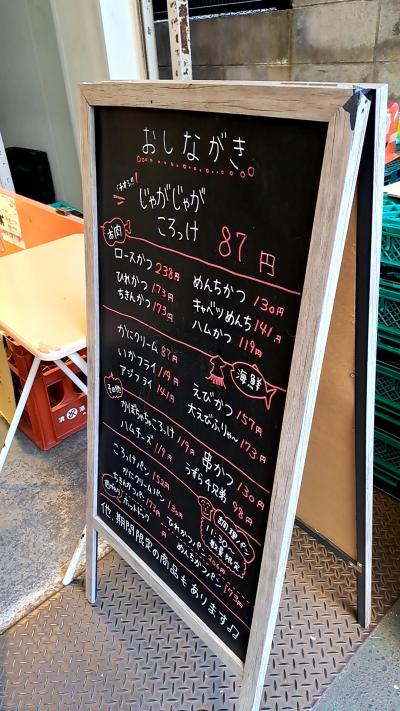 おしながき
じゃがじゃが
ころっけ 87円
お肉
ロースかつ 238円
ひれかつ 173円
ちきんかつ 173円
めんちかつ 130円
キャベツめんち 141円
ハムかつ 119円
海鮮
かにクリーム 87円
いかフライ 119円
アジフライ 141円
えびかつ 157円
大えびふりゃ〜 173円
その他
かぼちゃころっけ 119円
ハムチーズ 119円
串かつ 130円
うずら4兄弟 98円
調理パン
11:30〜
数量限定
ころっけパン 152円
かにクリームパン 130円
ちきんかつパン 173円
ホットドッグ 円
ひれかつパン
めんちかつパン 173円
他、期間限定の商品もあります♫